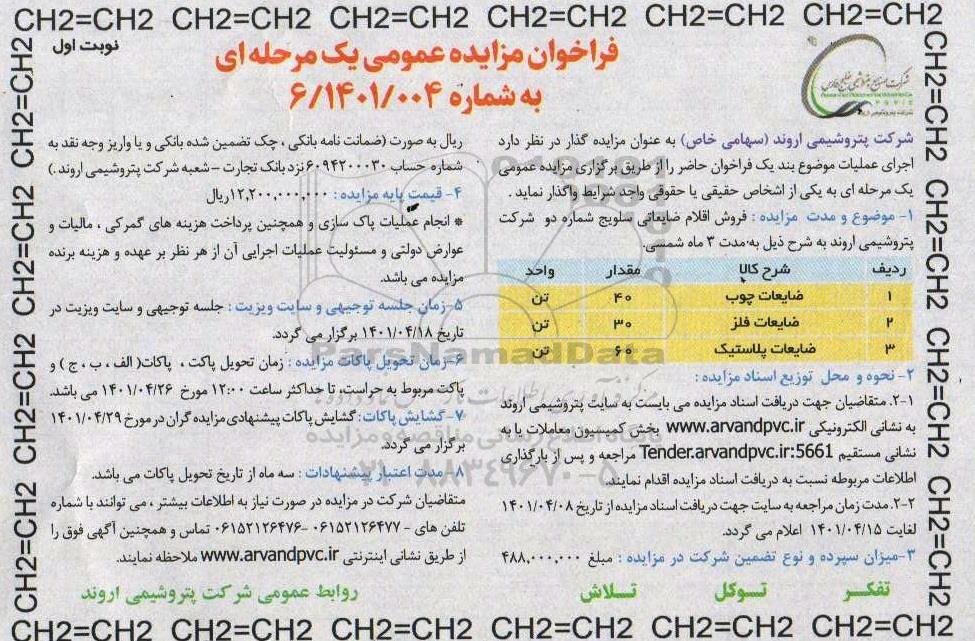 CH2=CH2 CH2=CH2 CH2=CH2 CH2=CH2 CH2=CH2 CH2=CH2
نوبت اول
فراخوان مزایده عمومی یک مرحله ای
به شماره ۶/۱۴۰۱/۰۰۴
شرکت پتروشیمی اروند (سهامی خاص) به عنوان مزایده گذار در نظر دارد
اجرای عملیات موضوع بند یک فراخوان حاضر را از طریق برگزاری مزایده عمومی
یک مرحله ای به یکی از اشخاص حقیقی یا حقوقی واجد شرایط واگذار نماید.
۱- موضوع و مدت مزایده : فروش اقلام ضایعاتی سلویج شماره دو شرکت
پتروشیمی اروند به شرح ذیل به مدت ۳ ماه شمسی.
ردیف شرح کالا مقدار واحد
۱ ضایعات چوب ۴۰ تن
۲ ضایعات فلز ۳۰ تن
۳ ضایعات پلاستیک ۶۰ تن
۲- نحوه و محل توزیع اسناد مزایده :
۲-۱. متقاضیان جهت دریافت اسناد مزایده می بایست به سایت پتروشیمی اروند
به نشانی الکترونیکی www.arvandpvc.ir بخش کمیسیون معاملات یا به
نشانی مستقیم Tender.arvandpvc.ir:5661 مراجعه و پس از بارگذاری
اطلاعات مربوطه نسبت به دریافت اسناد مزایده اقدام نمایند.
۲-۲. مدت زمان مراجعه به سایت جهت دریافت اسناد مزایده از تاریخ ۱۴۰۱/۰۴/۰۸
لغایت ۱۴۰۱/۰۴/۱۵ اعلام می گردد.
۳-میزان سپرده و نوع تضمین شرکت در مزایده : مبلغ ۴۸۸,۰۰۰,۰۰۰
ریال به صورت (ضمانت نامه بانکی ، چک تضمین شده بانکی و یا واریز وجه نقد به
شماره حساب ۶۰۹۴۲۰۰۰۳۰ نزد بانک تجارت – شعبه شرکت پتروشیمی اروند.)
۴- قیمت پایه مزایده : ۱۲,۲۰۰,۰۰۰,۰۰۰ ریال
* انجام عملیات پاک سازی و همچنین پرداخت هزینه های گمرکی ، مالیات و
عوارض دولتی و مسئولیت عملیات اجرایی آن از هر نظر بر عهده و هزینه برنده
مزایده می باشد.
۵-زمان جلسه توجیهی و سایت ویزیت : جلسه توجیهی و سایت ویزیت در
تاریخ ۱۴۰۱/۰۴/۱۸ برگزار می گردد.
۶-زمان تحویل پاکات مزایده : زمان تحویل پاکت ، پاکات( الف ، ب ، ج ) و
پاکت مربوط به حراست، تا حداکثر ساعت ۱۲:۰۰ مورخ ۱۴۰۱/۰۴/۲۶ می باشد.
۷-گشایش پاکات: گشایش پاکات پیشنهادی مزایده گران در مورخ ۱۴۰۱/۰۴/۲۹
برگزار می گردد.
۸-مدت اعتبار پیشنهادات : سه ماه از تاریخ تحویل پاکات می باشد.
متقاضیان شرکت در مزایده در صورت نیاز به اطلاعات بیشتر ، می توانند با شماره
تلفن های ۰۶۱۵۲۱۲۶۴۷۷ - ۰۶۱۵۲۱۲۶۴۷۶ تماس و همچنین آگهی فوق را
از طریق نشانی اینترنتی www.arvandpvc.ir ملاحظه نمایند.
تفکر توکل تلاش
روابط عمومی شرکت پتروشیمی اروند
CH2=CH2 CH2=CH2 CH2=CH2 CH2=CH2 CH2=CH2 CH2=CH2
CH2=CH2 CH2=CH2 CH2=CH2 CH2=CH2
CH2=CH2 CH2=CH2 CH2=CH2 CH2=CH2
ParsNamadData
پایگاه اطلاع رسانی مناقصه و مزایده
۰۲۱-۸۸۳۴۹۶۷۰-۵